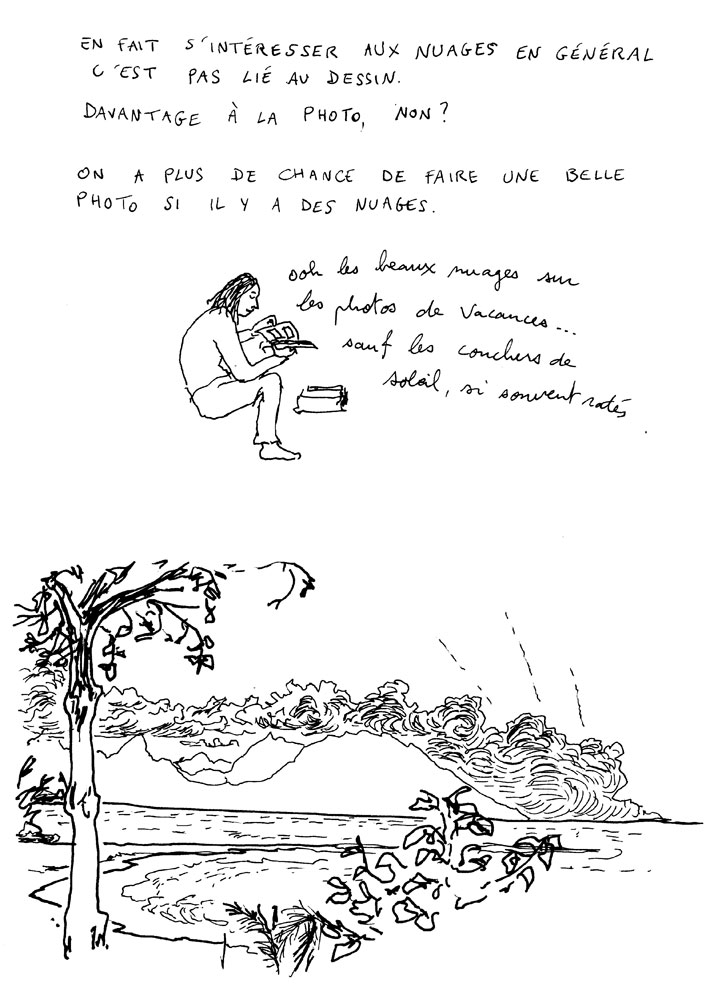 EN FAIT S'INTÉRESSER AUX NUAGES EN GÉNÉRAL
C'EST PAS LIÉ AU DESSIN.
DAVANTAGE À LA PHOTO, NON?
ON A PLUS DE CHANCE DE FAIRE UNE BELLE
PHOTO SI IL Y A DES NUAGES.
ooh les beaux nuages sur
les photos de vacances...
sauf les couchers de
soleil, si souvent ratés